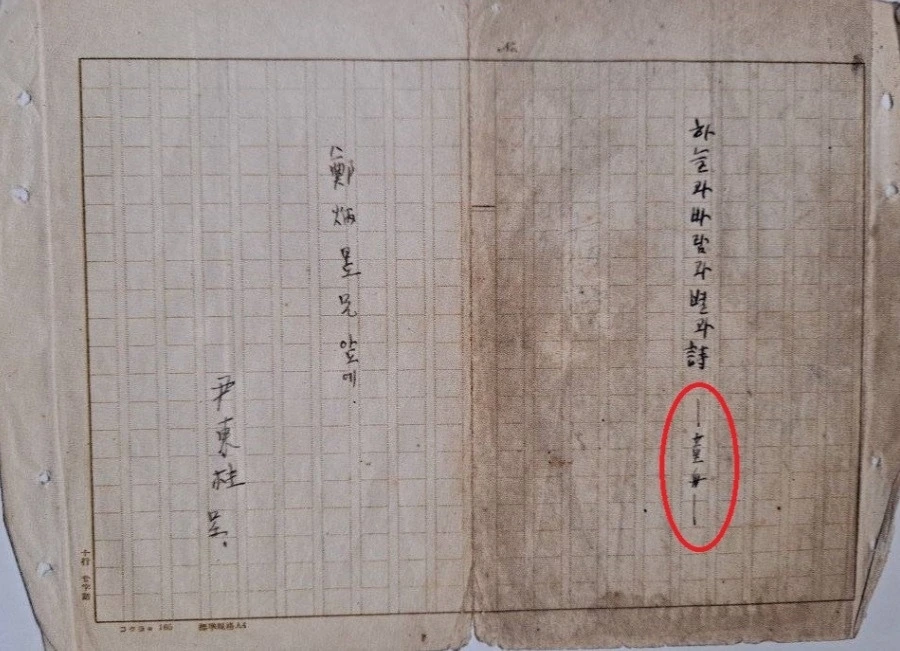 No.
하늘과 바람과 별과 詩 ―童舟―
鄭炳昱兄 앞에.
尹東柱 呈.
十行 廿字詰
コクヨ 165 標準規格A4